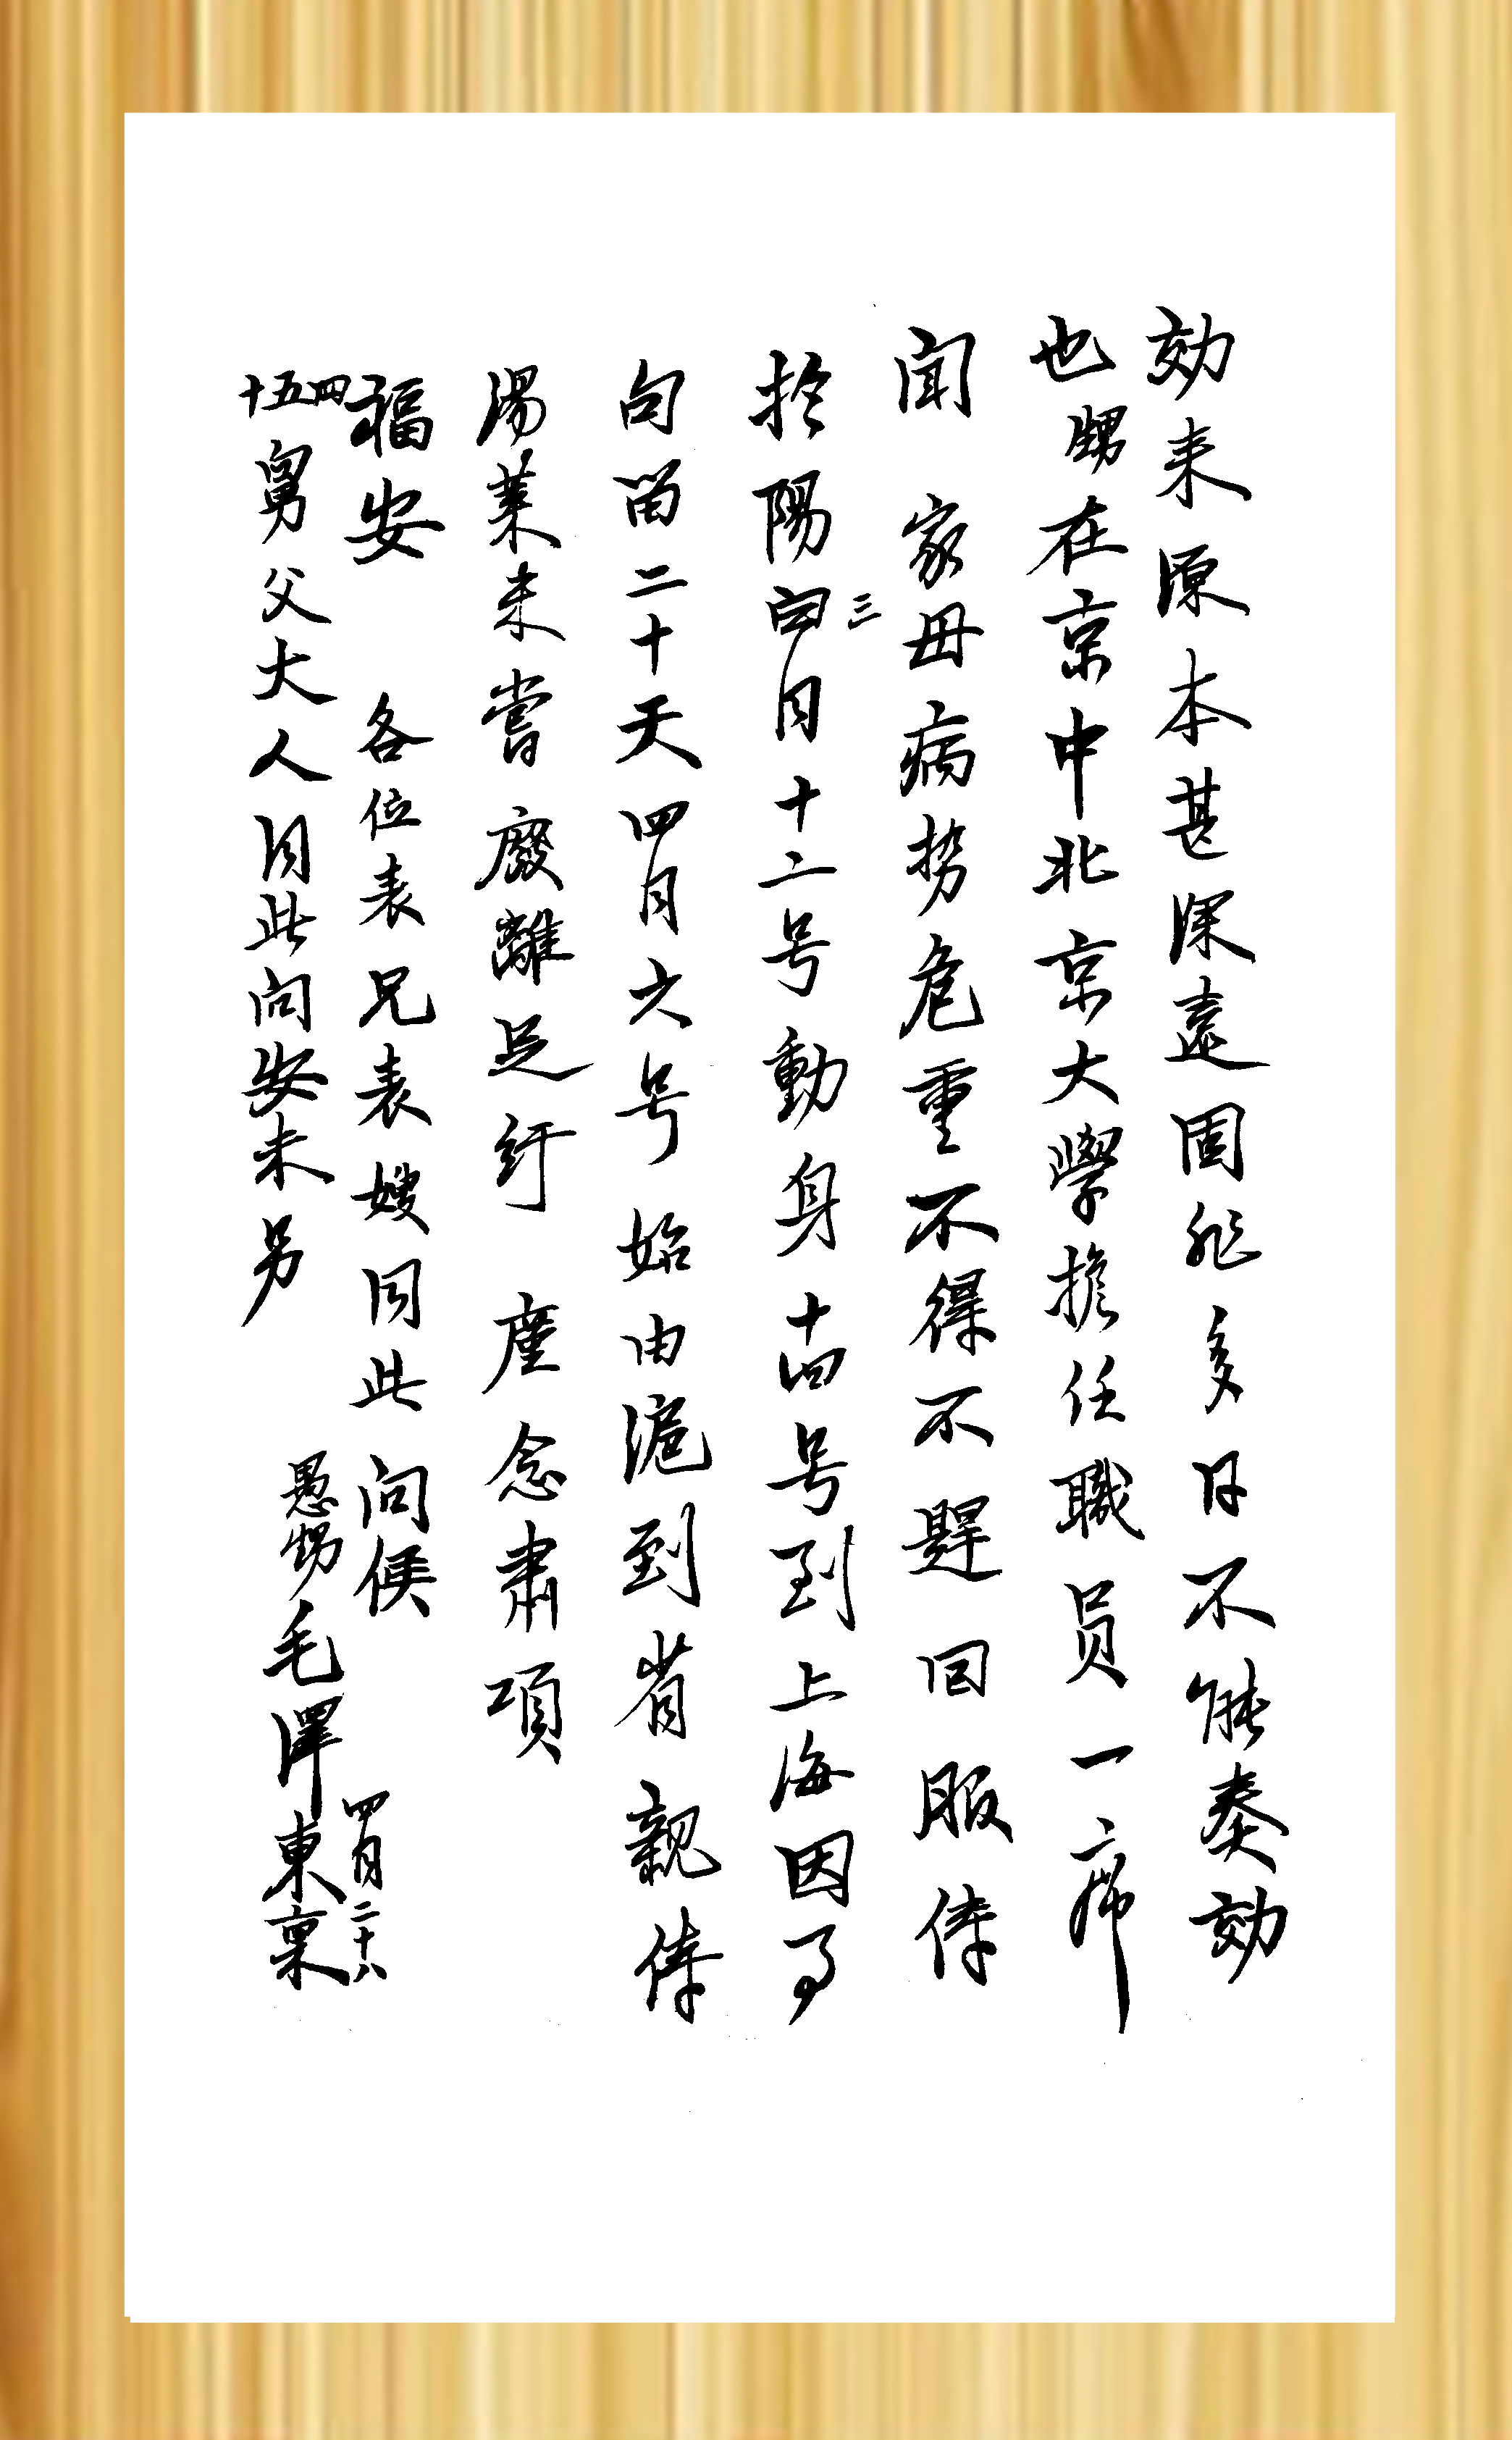 効来源本甚深遠固非多日不能奏効
也甥在京中北京大學擔任職员一席
聞 家母病势危重不得不趕回服侍
於陽曆三月十二号動身十四号到上海因事
勾留二十天四月六号始由滬到省親侍
湯藥未嘗廢離足紓 廑念肅項
福安 各位表兄表嫂同此问候
四五十舅父大人同此问安未另
愚甥毛澤東禀
四月二十八